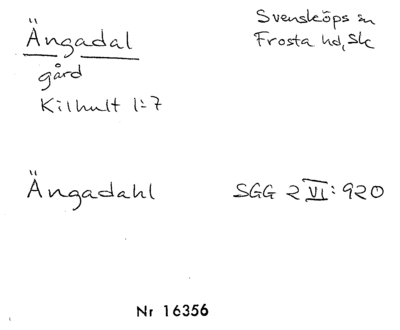 Ängadal
Svensköps sn
Frosta hd, Sk
gård
Kilhult 1:7
Ängadahl
SGG 2 VI: 920
Nr 16356